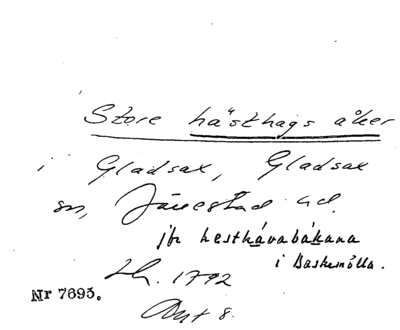 Store hästhags åker
i Gladsax, Gladsax
sn, Järrestad hd.
jfr hestkávabákana
i Baskemölla.
Lh. 1792
Nr 7695.
Akt 8.